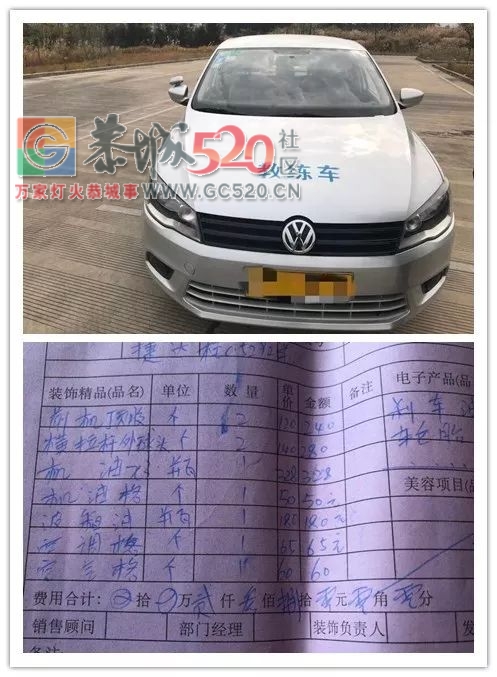 恭城520社区
万家灯火恭城事 WWW.GC520.CN
教练车
捷达
装饰精品(品名) 单位 数量 单价 金额 备注 电子产品(品
个 2 120 240 刹车油
横拉杆外球头 个 2 140 280 轮胎
机油 瓶 1 328 328
机油格 个 1 50 50元 美容项目(品
波箱油 瓶 1 180 180元
空调格 个 1 65 65元
空气格 个 1 60 60
费用合计: 拾 万 贰 仟 佰 捌 拾 零 元 零 角 零 分
销售顾问 部门经理 装饰负责人 发
备注: